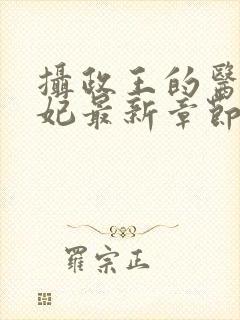 攝政王的醫
妃最新章節
羅宗正